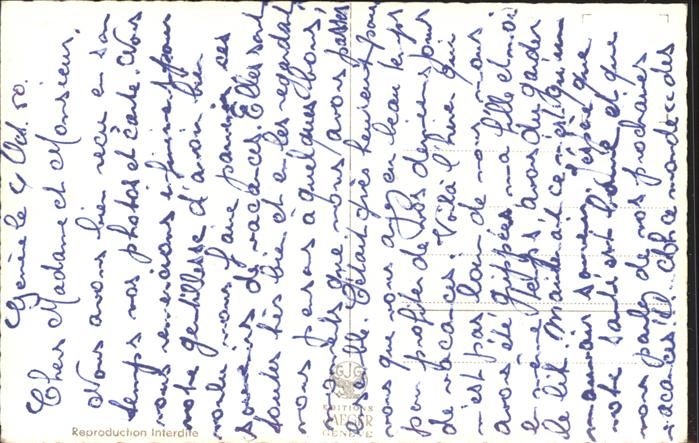 Genève le 4 Oct. 50.
Chers Madame et Monsieur,
Nous avons bien reçu en son
temps vos photos et carte. Nous
vous remercions infiniment pour
votre gentillesse d'avoir bien
voulu nous faire parvenir ces
souvenirs de vacances. Elles sont
toutes très bien et en les regardant
nous pensons à quelques bons
que nous avons passés
à Sierre. C'était très heureux pour
nous que nous ayons eu beau temps
pour profiter de nos derniers jours
de vacances. Voilà l'hiver qui
n'est pas loin de nos murs. Nous
avons été grippées ma fille et moi
en même temps avons dû garder
le lit. Maintenant ce n'est qu'un
mauvais souvenir. J'espère que
votre santé est bonne et que
vous parlez de vos prochaines
vacances. "Cette monde" des
GJG
EDITIONS
JAEGER
GENÈVE
Reproduction Interdite